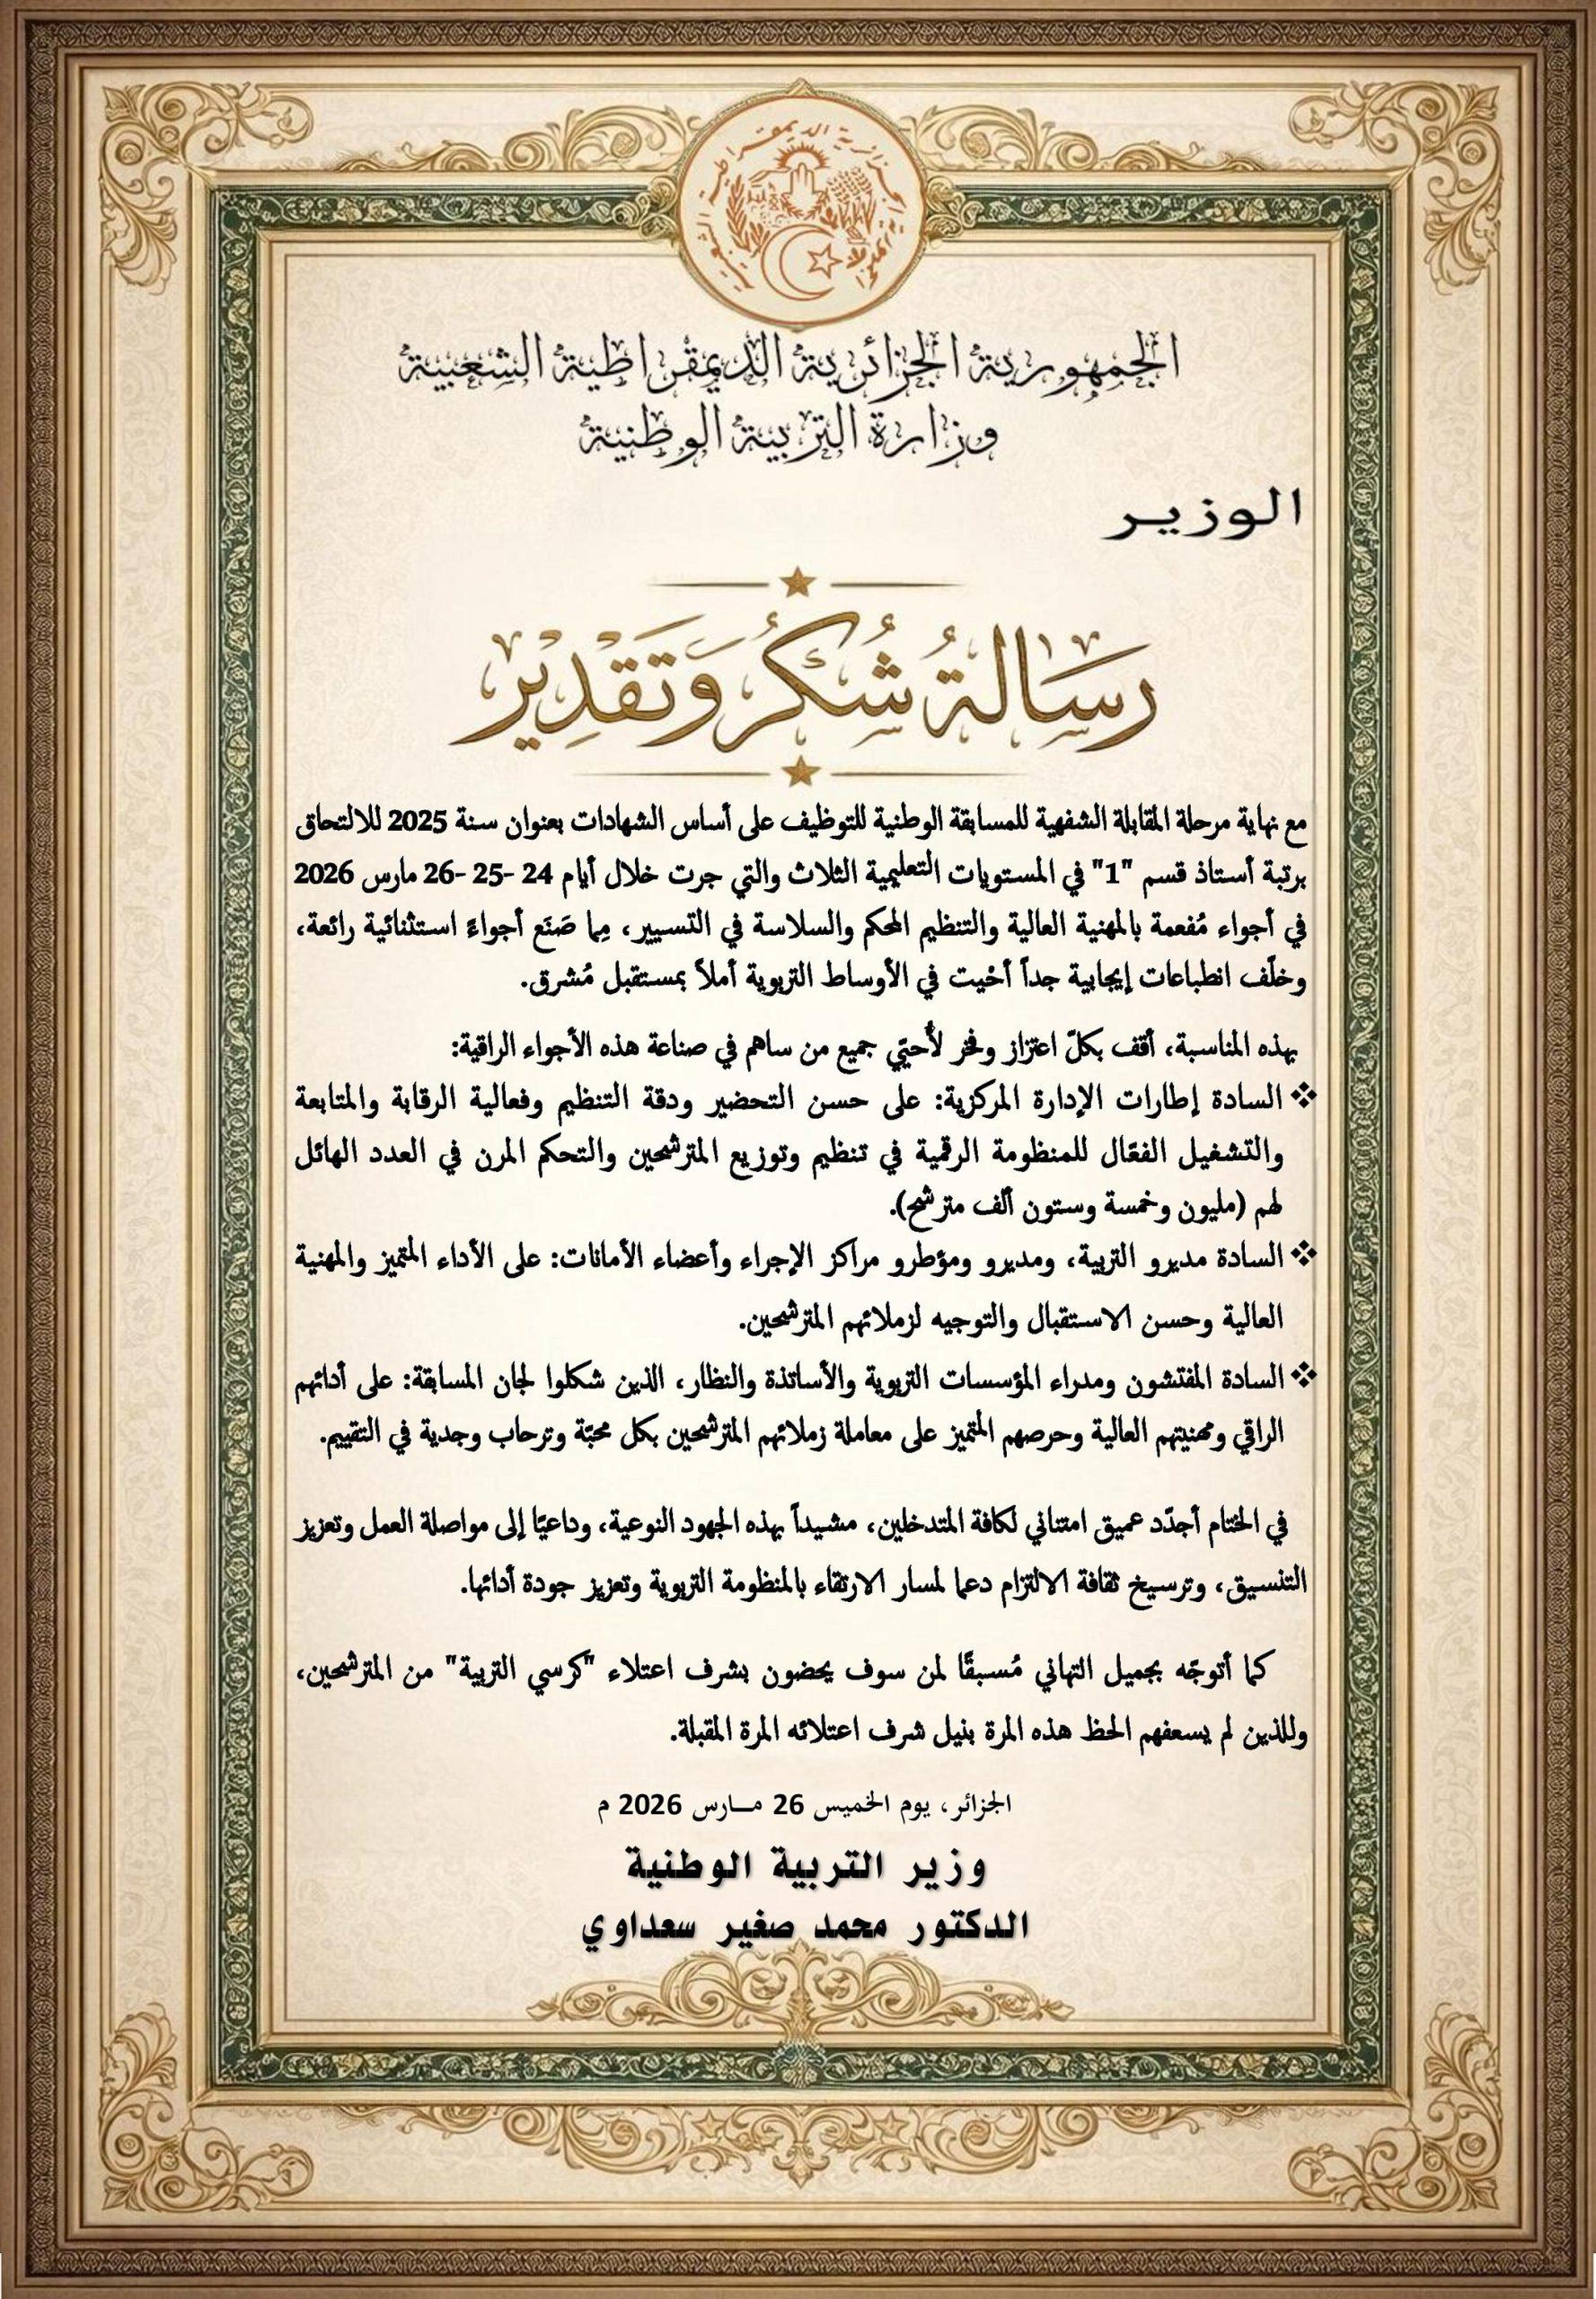 الجمهورية الجزائرية الديمقراطية الشعبية
الجمهورية الجزائرية الديمقراطية الشعبية
وزارة التربية الوطنية
الوزير
رسالة شكر وتقدير
مع نهاية مرحلة المقابلة الشفهية للمسابقة الوطنية للتوظيف على أساس الشهادات بعنوان سنة 2025 للالتحاق
برتبة أستاذ قسم "1" في المستويات التعليمية الثلاث والتي جرت خلال أيام 24 -25 -26 مارس 2026
في أجواء مُفعمة بالمهنية العالية والتنظيم المحكم والسلاسة في التسيير، مِما صَنَع أجواءً استثنائية رائعة،
وخلّف انطباعات إيجابية جداً أحْيت في الأوساط التربوية أملاً بمستقبل مُشرق.
بهذه المناسبة، أقف بكلّ اعتزاز وفخر لأُحيّي جميع من ساهم في صناعة هذه الأجواء الراقية:
❖ السادة إطارات الإدارة المركزية: على حسن التحضير ودقة التنظيم وفعالية الرقابة والمتابعة
والتشغيل الفعّال للمنظومة الرقمية في تنظيم وتوزيع المترشحين والتحكم المرن في العدد الهائل
لهم (مليون وخمسة وستون ألف مترشح).
❖ السادة مديرو التربية، ومديرو ومؤطرو مراكز الإجراء وأعضاء الأمانات: على الأداء المتميز والمهنية
العالية وحسن الاستقبال والتوجيه لزملائهم المترشحين.
❖ السادة المفتشون ومدراء المؤسسات التربوية والأساتذة والنظار، الذين شكلوا لجان المسابقة: على أدائهم
الراقي ومهنيتهم العالية وحرصهم المتميز على معاملة زملائهم المترشحين بكل محبّة وترحاب وجدية في التقييم.
في الختام أجدّد عميق امتناني لكافة المتدخلين، مشيداً بهذه الجهود النوعية، وداعيًا إلى مواصلة العمل وتعزيز
التنسيق، وترسيخ ثقافة الالتزام دعما لمسار الارتقاء بالمنظومة التربوية وتعزيز جودة أدائها.
كما أتوجّه بجميل التهاني مُسبقًا لمن سوف يحضون بشرف اعتلاء "كرسي التربية" من المترشحين،
وللذين لم يسعفهم الحظ هذه المرة بنيل شرف اعتلائه المرة المقبلة.
الجزائر، يوم الخميس 26 مـارس 2026 م
وزير التربية الوطنية
الدكتور محمد صغير سعداوي